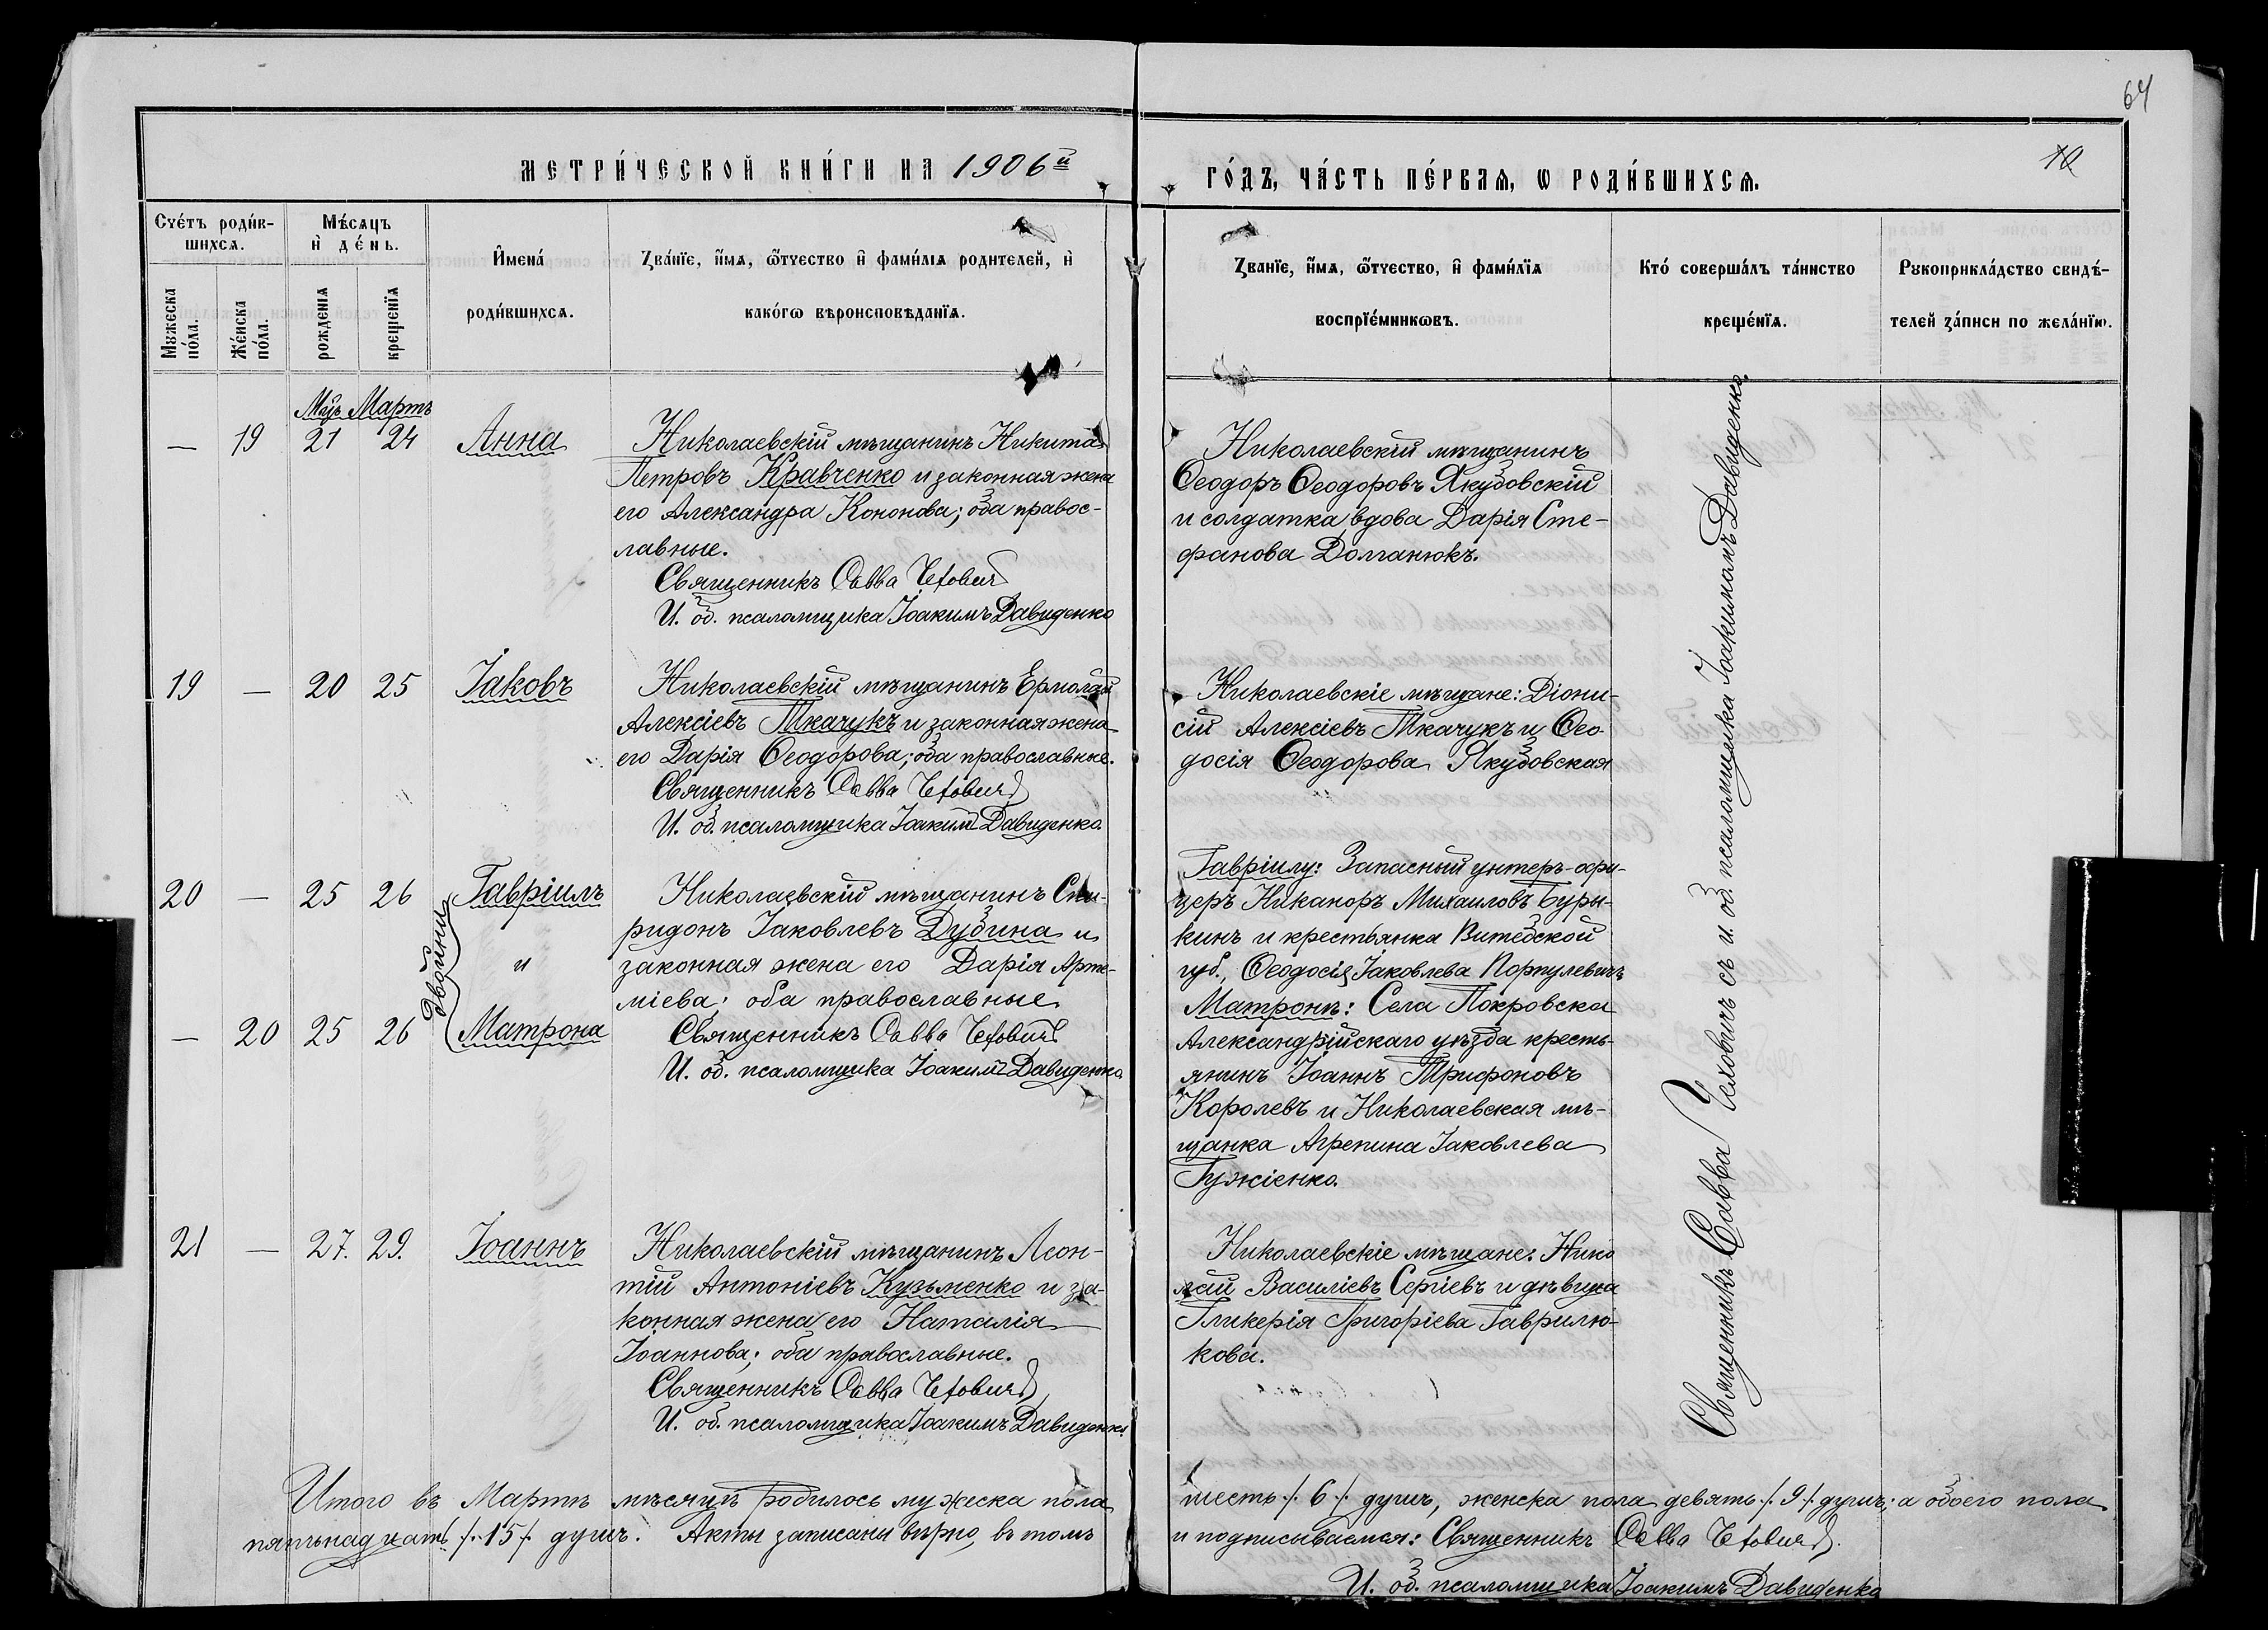 64
МЕТРИ́ЧЕСКОЙ КНИ́ГИ НА 1906й
ГО́ДЪ, ЧА́СТЬ ПЕ́РВАЯ, Ѡ РОДИ́ВШИХСѦ.
10
Счетъ роди́в-
шихсѧ.
Мѣ́сѧцъ
и҆ де́нь.
И҆мена́
роди́вшихсѧ.
Зва́нїе, и҆́мѧ, ѻ҆́тчество и҆ фами́лїѧ родителей, и҆
како́гѡ вѣроисповѣданїѧ.
Званїе, и҆́мѧ, ѻ҆́тчество, и҆ фами́лїѧ
воспрїе́мникѡвъ.
Кто́ соверша́лъ та́инство
креще́нїѧ.
Рꙋкоприкла́дство свидѣ́-
телей за́писи по жела́нїю.
Мꙋжеска
по́ла.
Же́нска
по́ла.
рожденїѧ
крещенїѧ
Мцъ Мартъ
— 19 21 24 Анна
Николаевскій мѣщанинъ Никита
Петровъ Кравченко и законная жена
его Александра Кононова; оба правос-
лавные.
Священникъ Савва Чеховичъ
И. об. псаломщика Іоакимъ Давиденко
Николаевскій мѣщанинъ
Ѳеодоръ Ѳеодоровъ Якубовскій
и солдатка вдова Дарія Сте-
фанова Долганюкъ.
19 — 20 25 Іаковъ
Николаевскій мѣщанинъ Ермолай
Алексіевъ Ткачукъ и законная жена
его Дарія Ѳеодорова; оба православные.
Священникъ Савва Чеховичъ
И. об. псаломщика Іоакимъ Давиденко
Николаевскіе мѣщане: Діони-
сій Алексіевъ Ткачукъ и Ѳео-
досія Ѳеодорова Якубовская
20 — 25 26 Гавріилъ
двойни
и
— 20 25 26 Матрона
Николаевскій мѣщанинъ Спи-
ридонъ Іаковлевъ Дубина и
законная жена его Дарія Арте-
міева; оба православные
Священникъ Савва Чеховичъ
И. об. псаломщика Іоакимъ Давиденко
Гавріилу: Запасный унтеръ-офи-
церъ Никаноръ Михаиловъ Буры-
кинъ и крестьянка Витебской
губ., Ѳеодосія Іаковлева
Матронѣ: Села Покровска
Александрійскаго уѣзда кресть-
янинъ Іоаннъ Трифоновъ
Королевъ и Николаевская мѣ-
щанка Агрепина Іаковлева
Гужіенко.
21 — 27. 29. Іоаннъ
Николаевскій мѣщанинъ Леон-
тій Антоніевъ Кузьменко и за-
конная жена его Наталія
Іоаннова; оба православные.
Священникъ Савва Чеховичъ
И. об. псаломщика Іоакимъ Давиденко
Николаевскіе мѣщане: Нико
лай Василіевъ Сергіевъ и дѣвица
Гликерія Григоріева Гаврилю-
кова.
Священникъ Савва Чеховичъ съ и. об. псаломщика Іоакимомъ Давиденко.
Итого въ Мартѣ мѣсяцѣ родилось мужеска пола
шесть /. 6 /. душъ, женска пола девять /. 9 /. душъ; а обоего пола
пятьнадцать /. 15 /. душъ. Акты записаны вѣрно, въ томъ
и подписываемся: Священникъ Савва Чеховичъ.
И. об. псаломщика Іоакимъ Давиденко